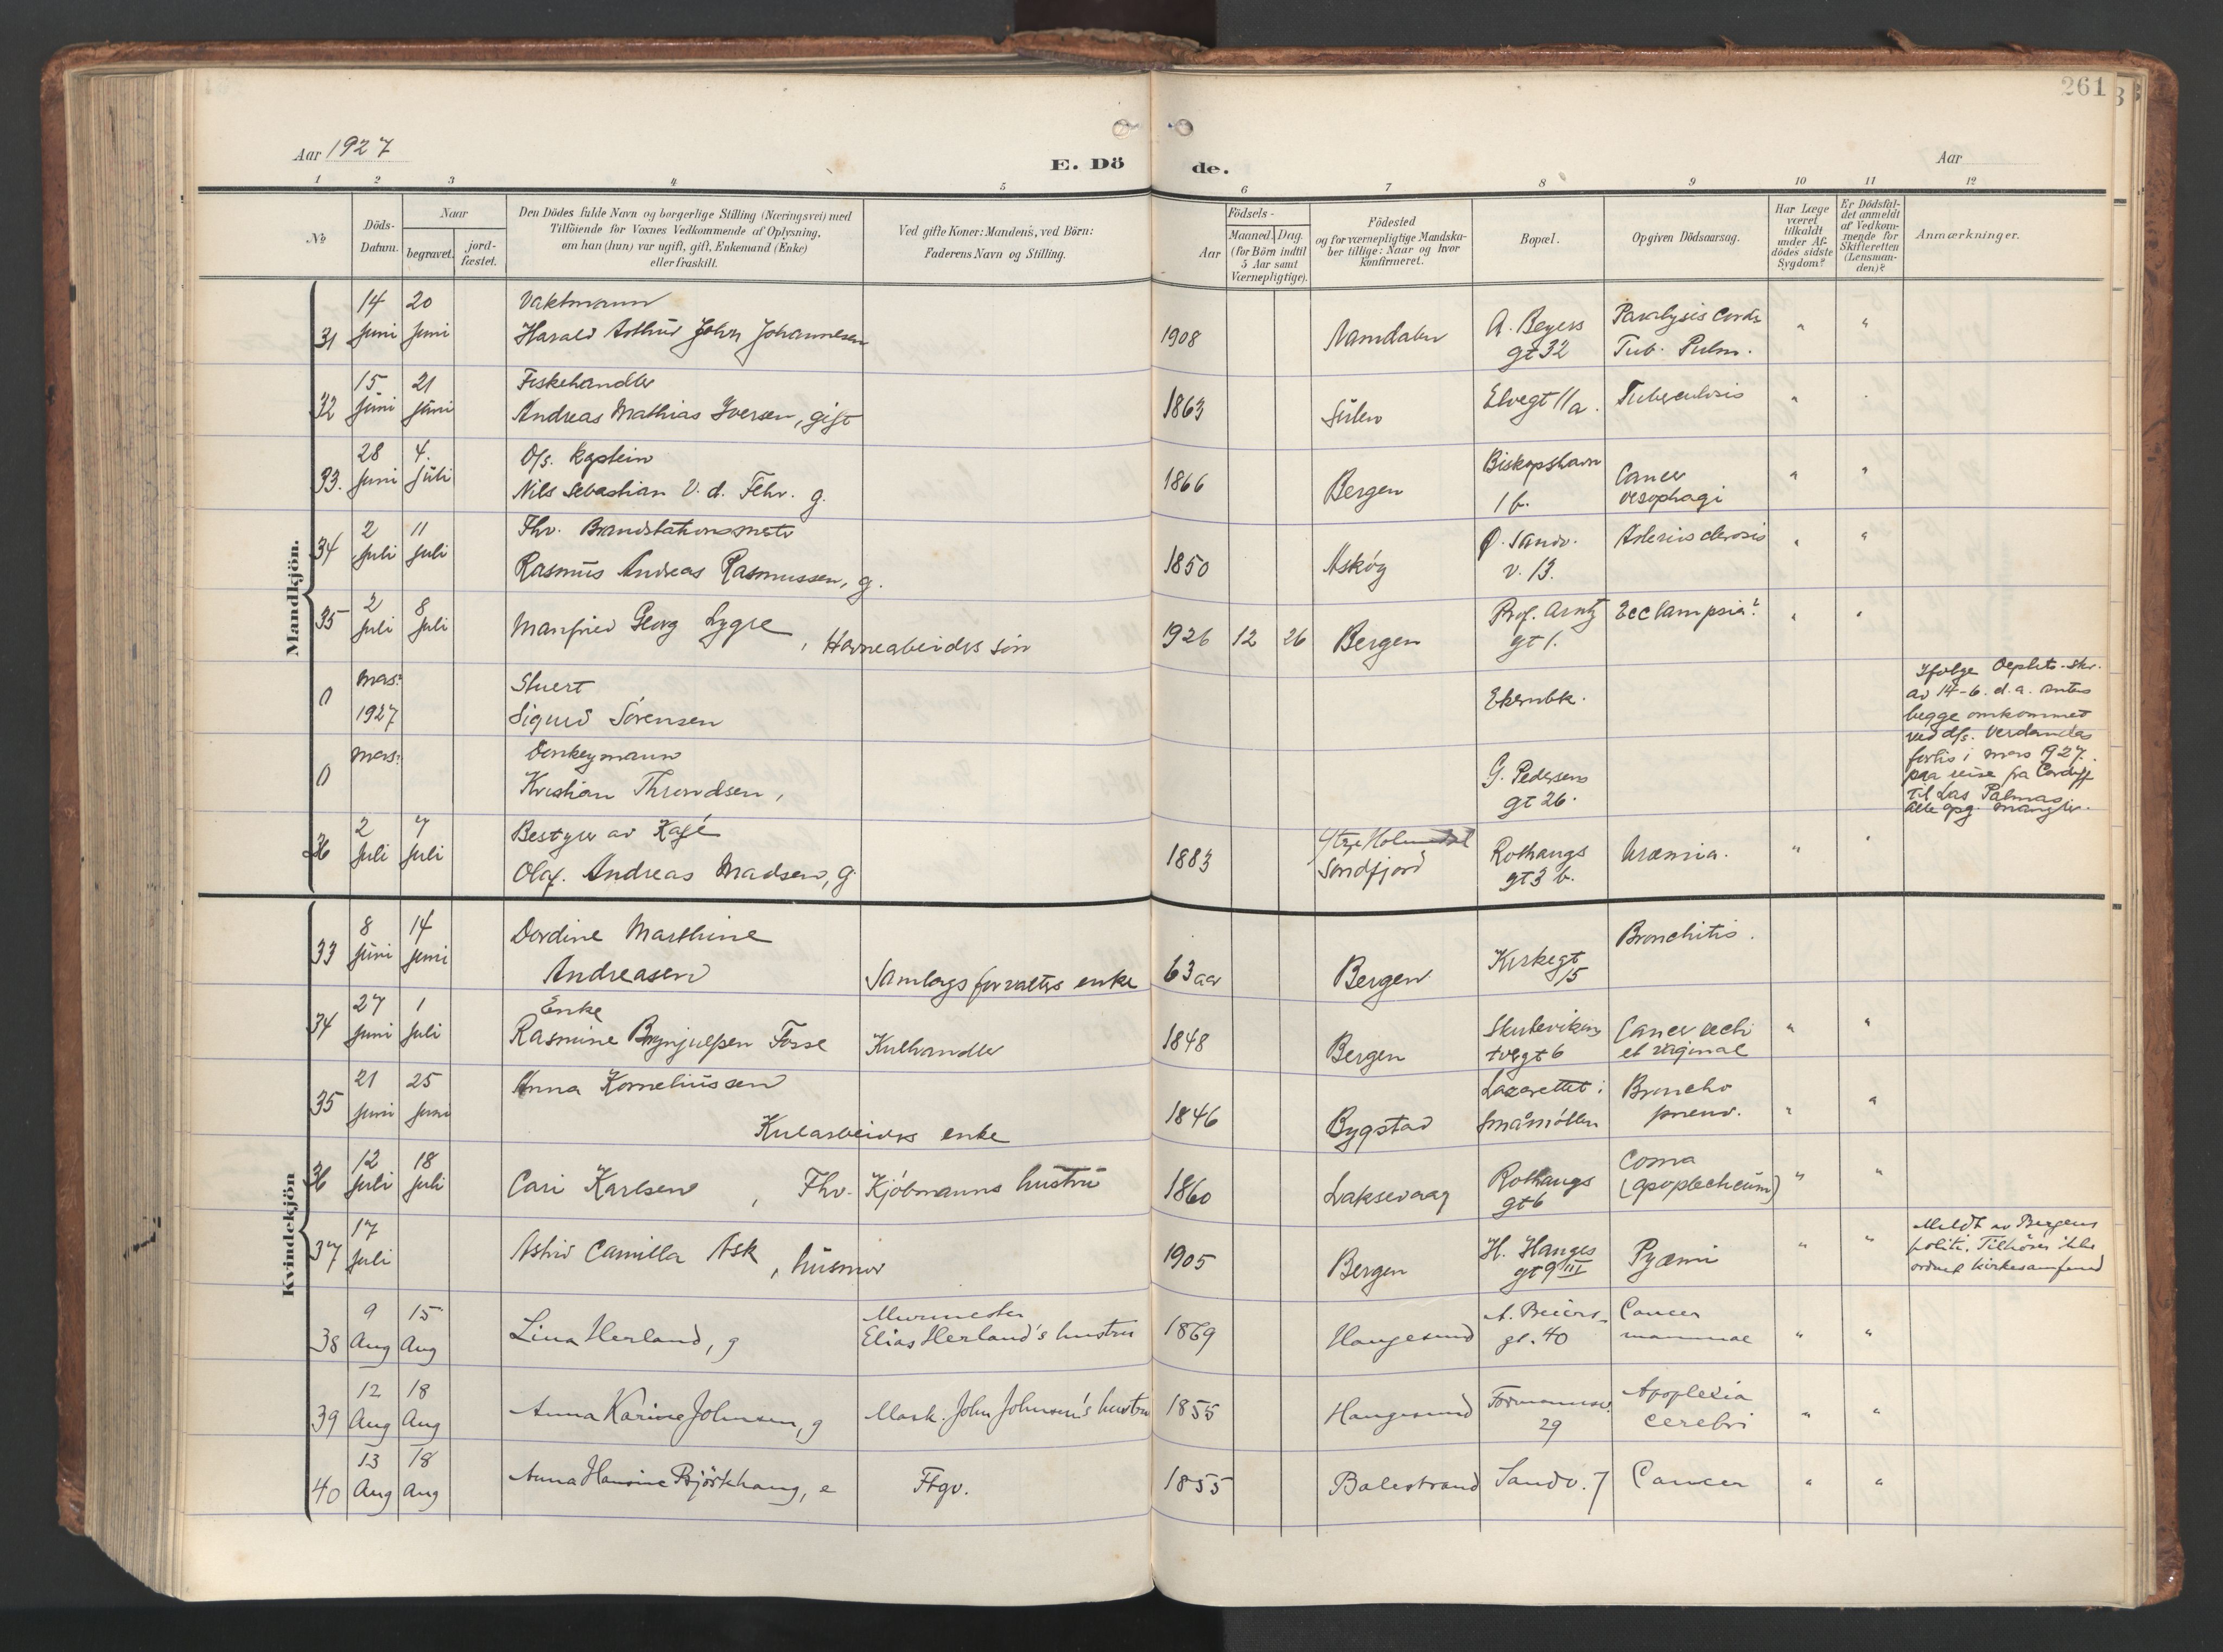 261
Aar 1927
E. Dö
de.
Aar
1 2 3 4 5 6 7 8 9 10 11 12
No
Döds-
Datum.
Naar
begravet.
jord-
fæstet.
Den Dödes fulde Navn og borgerlige Stilling (Næringsvei) med
Tilföiende for Voxnes Vedkommende af Oplysning,
om han (hun) var ugift, gift, Enkemand (Enke)
eller fraskilt.
Ved gifte Koner: Mandens, ved Börn:
Faderens Navn og Stilling.
Födsels-
Aar
Maaned. Dag.
(for Börn indtil
5 Aar samt
Værnepligtige).
Födested
og for værnepligtige Mandska-
ber tillige: Naar og hvor
konfirmeret.
Bopæl.
Opgiven Dödsaarsag.
Har Læge
været
tilkaldt
under Af-
dödes sidste
Sygdom?
Er Dödsfal-
det anmeldt
af Vedkom-
mende for
Skifteretten
(Lensman-
den)?
Anmærkninger.
Mandkjön.
31 14 Juni 20 Juni Vaktmann
Harald Arthur John Johannesen 1908 Namdalen A. Beyers
gt 32 Paralysis Cordis
Tub. Pulm. " "
32 15 Juni 21 Juni Fiskehandler
Andreas Mathias Iversen, gift 1863 Sulen Elvegt 11a. Tuberculosis "
33. 28 Juni 4. Juli D/s. kaptein
Nils Sebastian V. d. Fehr. g. 1866 Bergen Biskopshavn
1 b. Cancer
oesophagi " "
34 2 Juli 11 Juli Fhv. Brandstationsmstr
Rasmus Andreas Rasmussen, g. 1850 Askög Ø. Sandv.
v. 13. Arteriosclerosis " "
35 2 Juli 8 Juli Manfred Georg Lygre, Havnearbeiders sön 1926 12 26 Bergen Prof. Arntz
gt 1. Ecclampsia? " "
0 mars?
1927 Stuert
Sigurd Sörensen Ekernbk.
0 mars? Donkeymann
Kristian Throndsen, G. Pedersens
gt 26.
Ifölge Skifte-skr.
av 14-6. d.a. antas
begge omkommet
ved d/s. Verdandes
forlis i mars 1927.
paa reise fra Cardiff
til Las Palmas.
Alle opg. mangler.
36 2 Juli 7 Juli Bestyrer av Kafé
Olaf. Andreas Madsen, g 1883 Ytre Holmedal
Söndfjord Rothaugs
gt 3 b. Uræmia. " "
Kvindekjön
33 8 Juni 14 Juni Dordine Marthine
Andreasen Samlagsforvalters enke 63 aar Bergen Kirkegt
15 Bronchitis.
34 27 Juni 1 Juli Enke
Rasmine Brynjulfsen Fosse Kulhandler 1848 Bergen Skuteviks
tvergt 6 Cancer recti
et vaginae " "
35 21 Juni 25 Juni Anna Korneliussen
Kularbeiders enke 1846 Bygstad Lazarettet i
Småmöllen Broncho
pneum. " "
36 12 Juli 18 Juli Cari Karlsen, Fhv. Kjöbmanns hustru 1860 Laksevaag Rothaugs
gt 6 Coma
(apoplecticum) " "
37 17 Juli Astrid Camilla Ask, husmor 1905 Bergen H. Hauges
gt 9 III Pyæmi " " Meldt av Bergens
politi. Tilhörer ikke
ordnet kirkesamfund
38 9 Aug 15 Aug Lina Herland, g Murmester
Elias Herland's hustru 1869 Haugesund A. Beiers-
gt. 40 Cancer
mammae " "
39 12 Aug 18 Aug Anna Karine Johnsen, g Mask. John Johnsen's hustru 1855 Haugesund Formannsv.
29 Apoplexia
cerebri " "
40 13 Aug 18 Aug Anna Hansine Björkhaug, e Ftgv. 1855 Balestrand Sandv. 7 Cancer " "